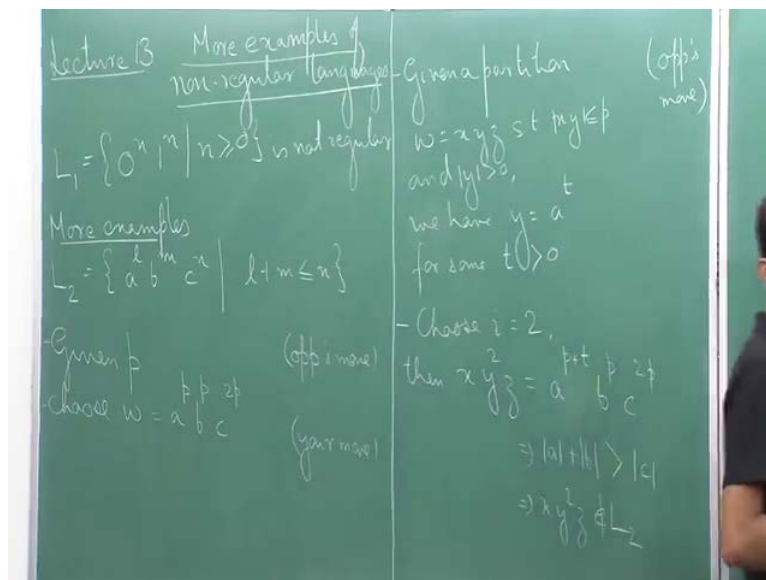 Lecture 13
More examples of
non-regular languages
L₁ = {0ⁿ 1ⁿ | n ≥ 0} is not regular
More examples
L₂ = {aˡ bᵐ cⁿ | l + m ≤ n}
- Given p (opp's move)
- choose w = aᵖ bᵖ c²ᵖ
(your move)
- Given a partition (opp's
move)
w = xyz s t |xy| ≤ p
and |y| > 0,
we have y = aᵗ
for some t > 0
- Choose i = 2,
then x y² z = aᵖ⁺ᵗ bᵖ c²ᵖ
⇒ |a| + |b| > |c|
⇒ x y² z ∉ L₂